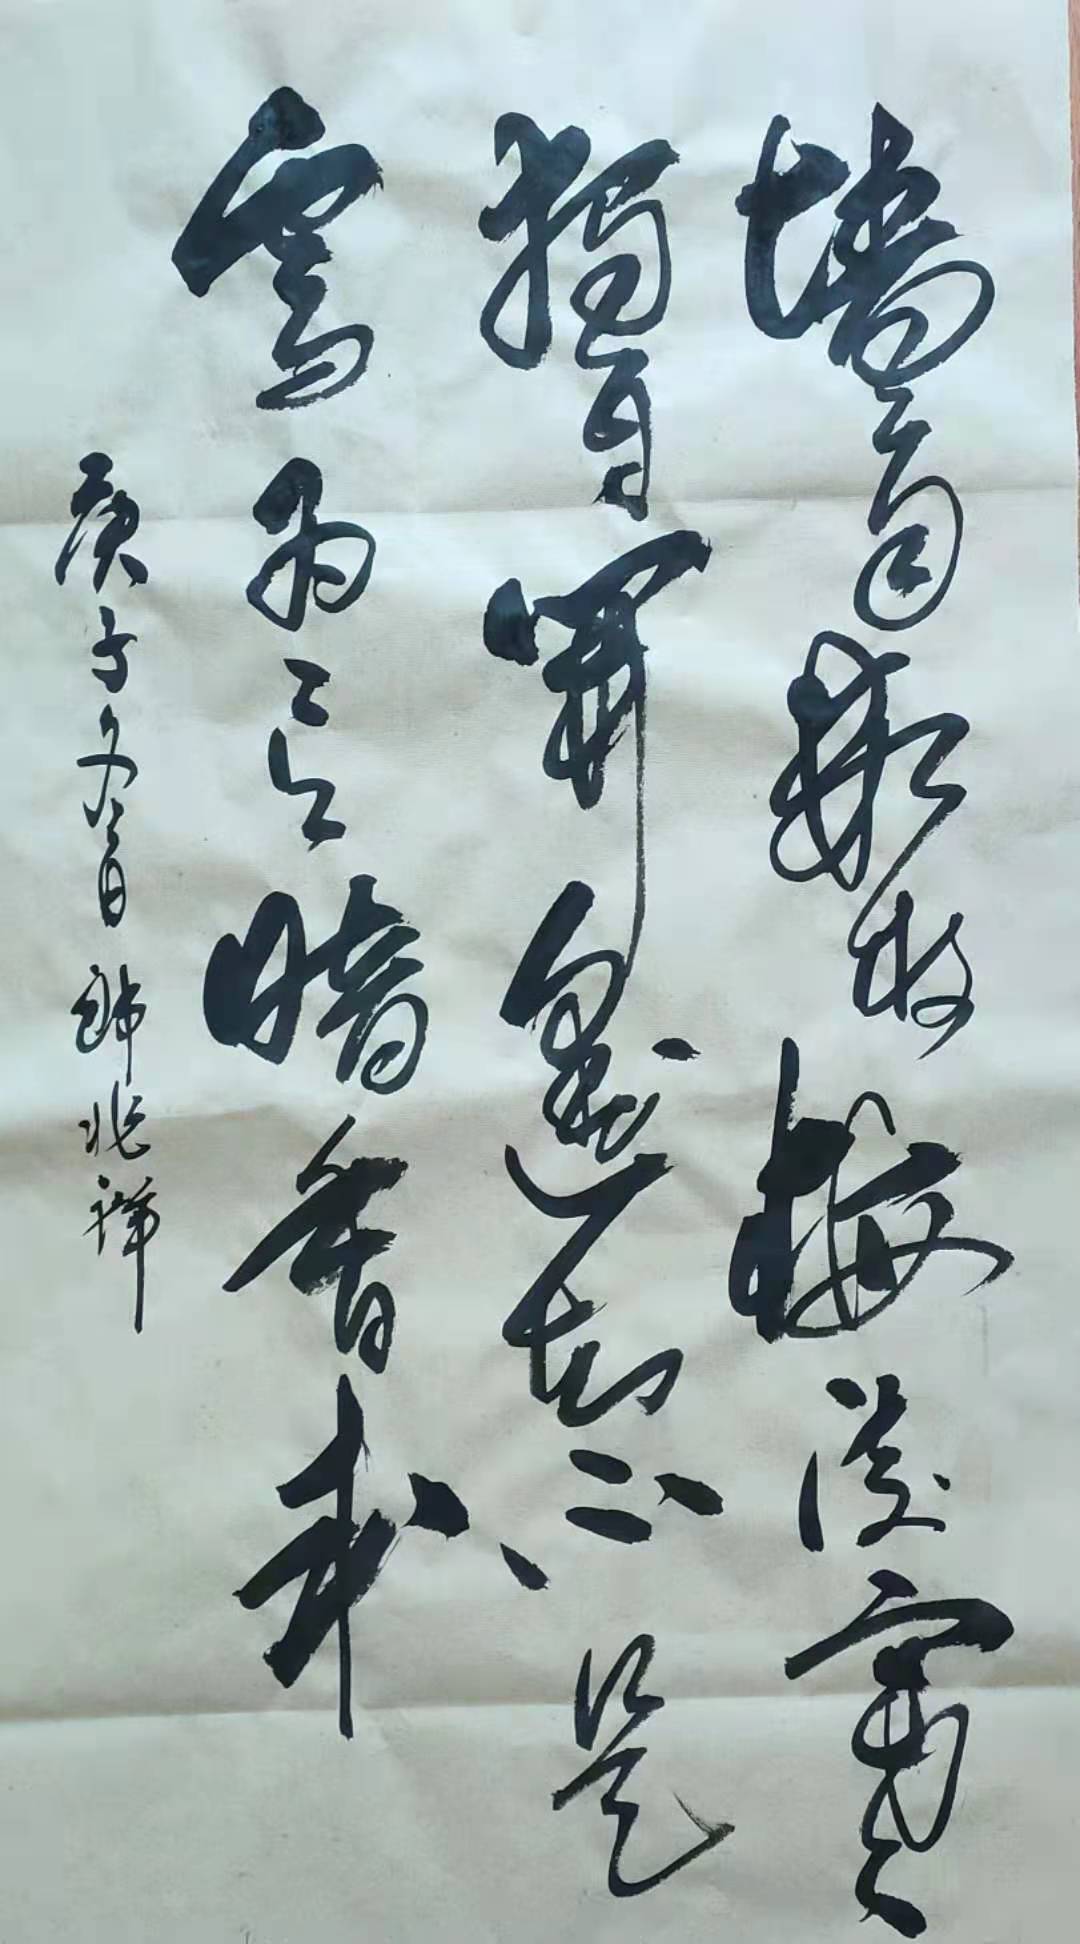 墙角數枝梅凌寒
獨自開遥知不是
雪为有暗香来
庚子冬日 兆祥